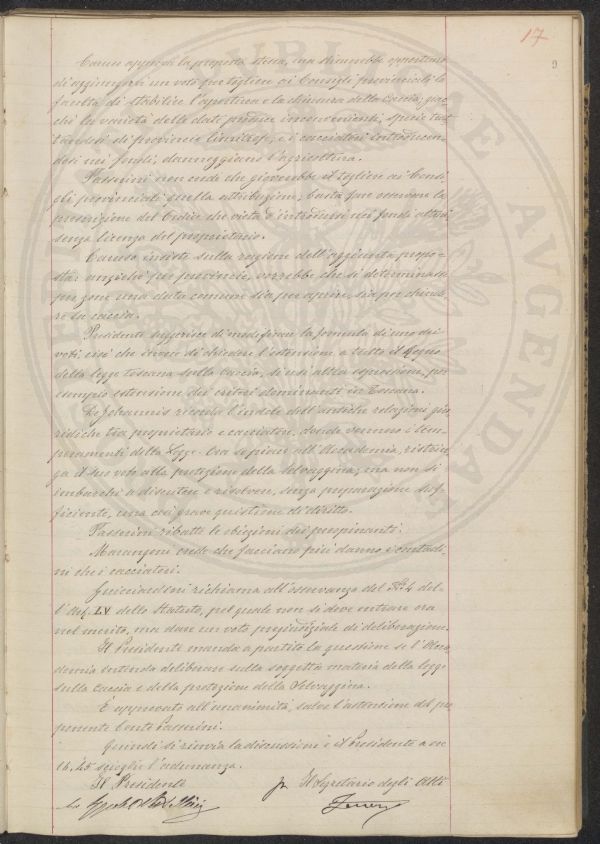 17
9
Caruso approva la proposta stessa, ma stimerebbe opportuno
di aggiungervi un voto per togliere ai Consigli provinciali la
facoltà di stabilire l'apertura e la chiusura della Caccia; giac
chè la varietà delle date produce inconvenienti, specie trat
tandosi di provincie limitrofe, e i cacciatori introducen-
dosi nei fondi, danneggiano l'agricoltura.
Passerini non crede che gioverebbe il togliere ai Consi
gli provinciali quella attribuzione, basta fare osservare la
prescrizione del Codice che vieta d'introdursi nei fondi altrui
senza licenza del proprietario.
Caruso insiste sulla ragione dell'aggiunta propo-
sta: anzichè per provincie, vorrebbe che si determinasse
per zone una data comune sia per aprire, sia per chiude
re la caccia.
Presidente suggerisce di modificare la formula di uno dei
voti; cioè che invece di chiedere l'estensione a tutto il Regno
della legge toscana sulla caccia, si usi altra espressione, per
esempio estensione dei criteri dominanti in Toscana.
De Johannis ricorda l'indole dell'antiche relazioni giu
ridiche tra proprietario e cacciatore, donde vennero i tem-
peramenti della Legge. Ora se piace all'Accademia, restrin
ga il suo voto alla protezione della selvaggina; ma non si
imbarchi a discutere e risolvere, senza preparazione suf-
ficiente, una così grave questione di diritto.
Passerini ribatte le obiezioni dei preopinanti.
Marangoni crede che facciano più danno i contadi
ni che i cacciatori.
Guicciardini richiama all'osservanza del N.° 4 del-
l'Art. LV dello Statuto, pel quale non si deve entrare ora
nel merito, ma dare un voto pregiudiziale di deliberazione.
Il Presidente manda a partito la questione se l'Acca
demia intenda deliberare sulla soggetta materia della legge
sulla caccia e della protezione della Selvaggina.
È approvato all'unanimità, salvo l'astensione del pro
ponente Conte Passerini.
Quindi si rinvia la discussione e il Presidente a ore
16,45 scioglie l'adunanza.
Il Presidente
p. Il Segretario degli Atti